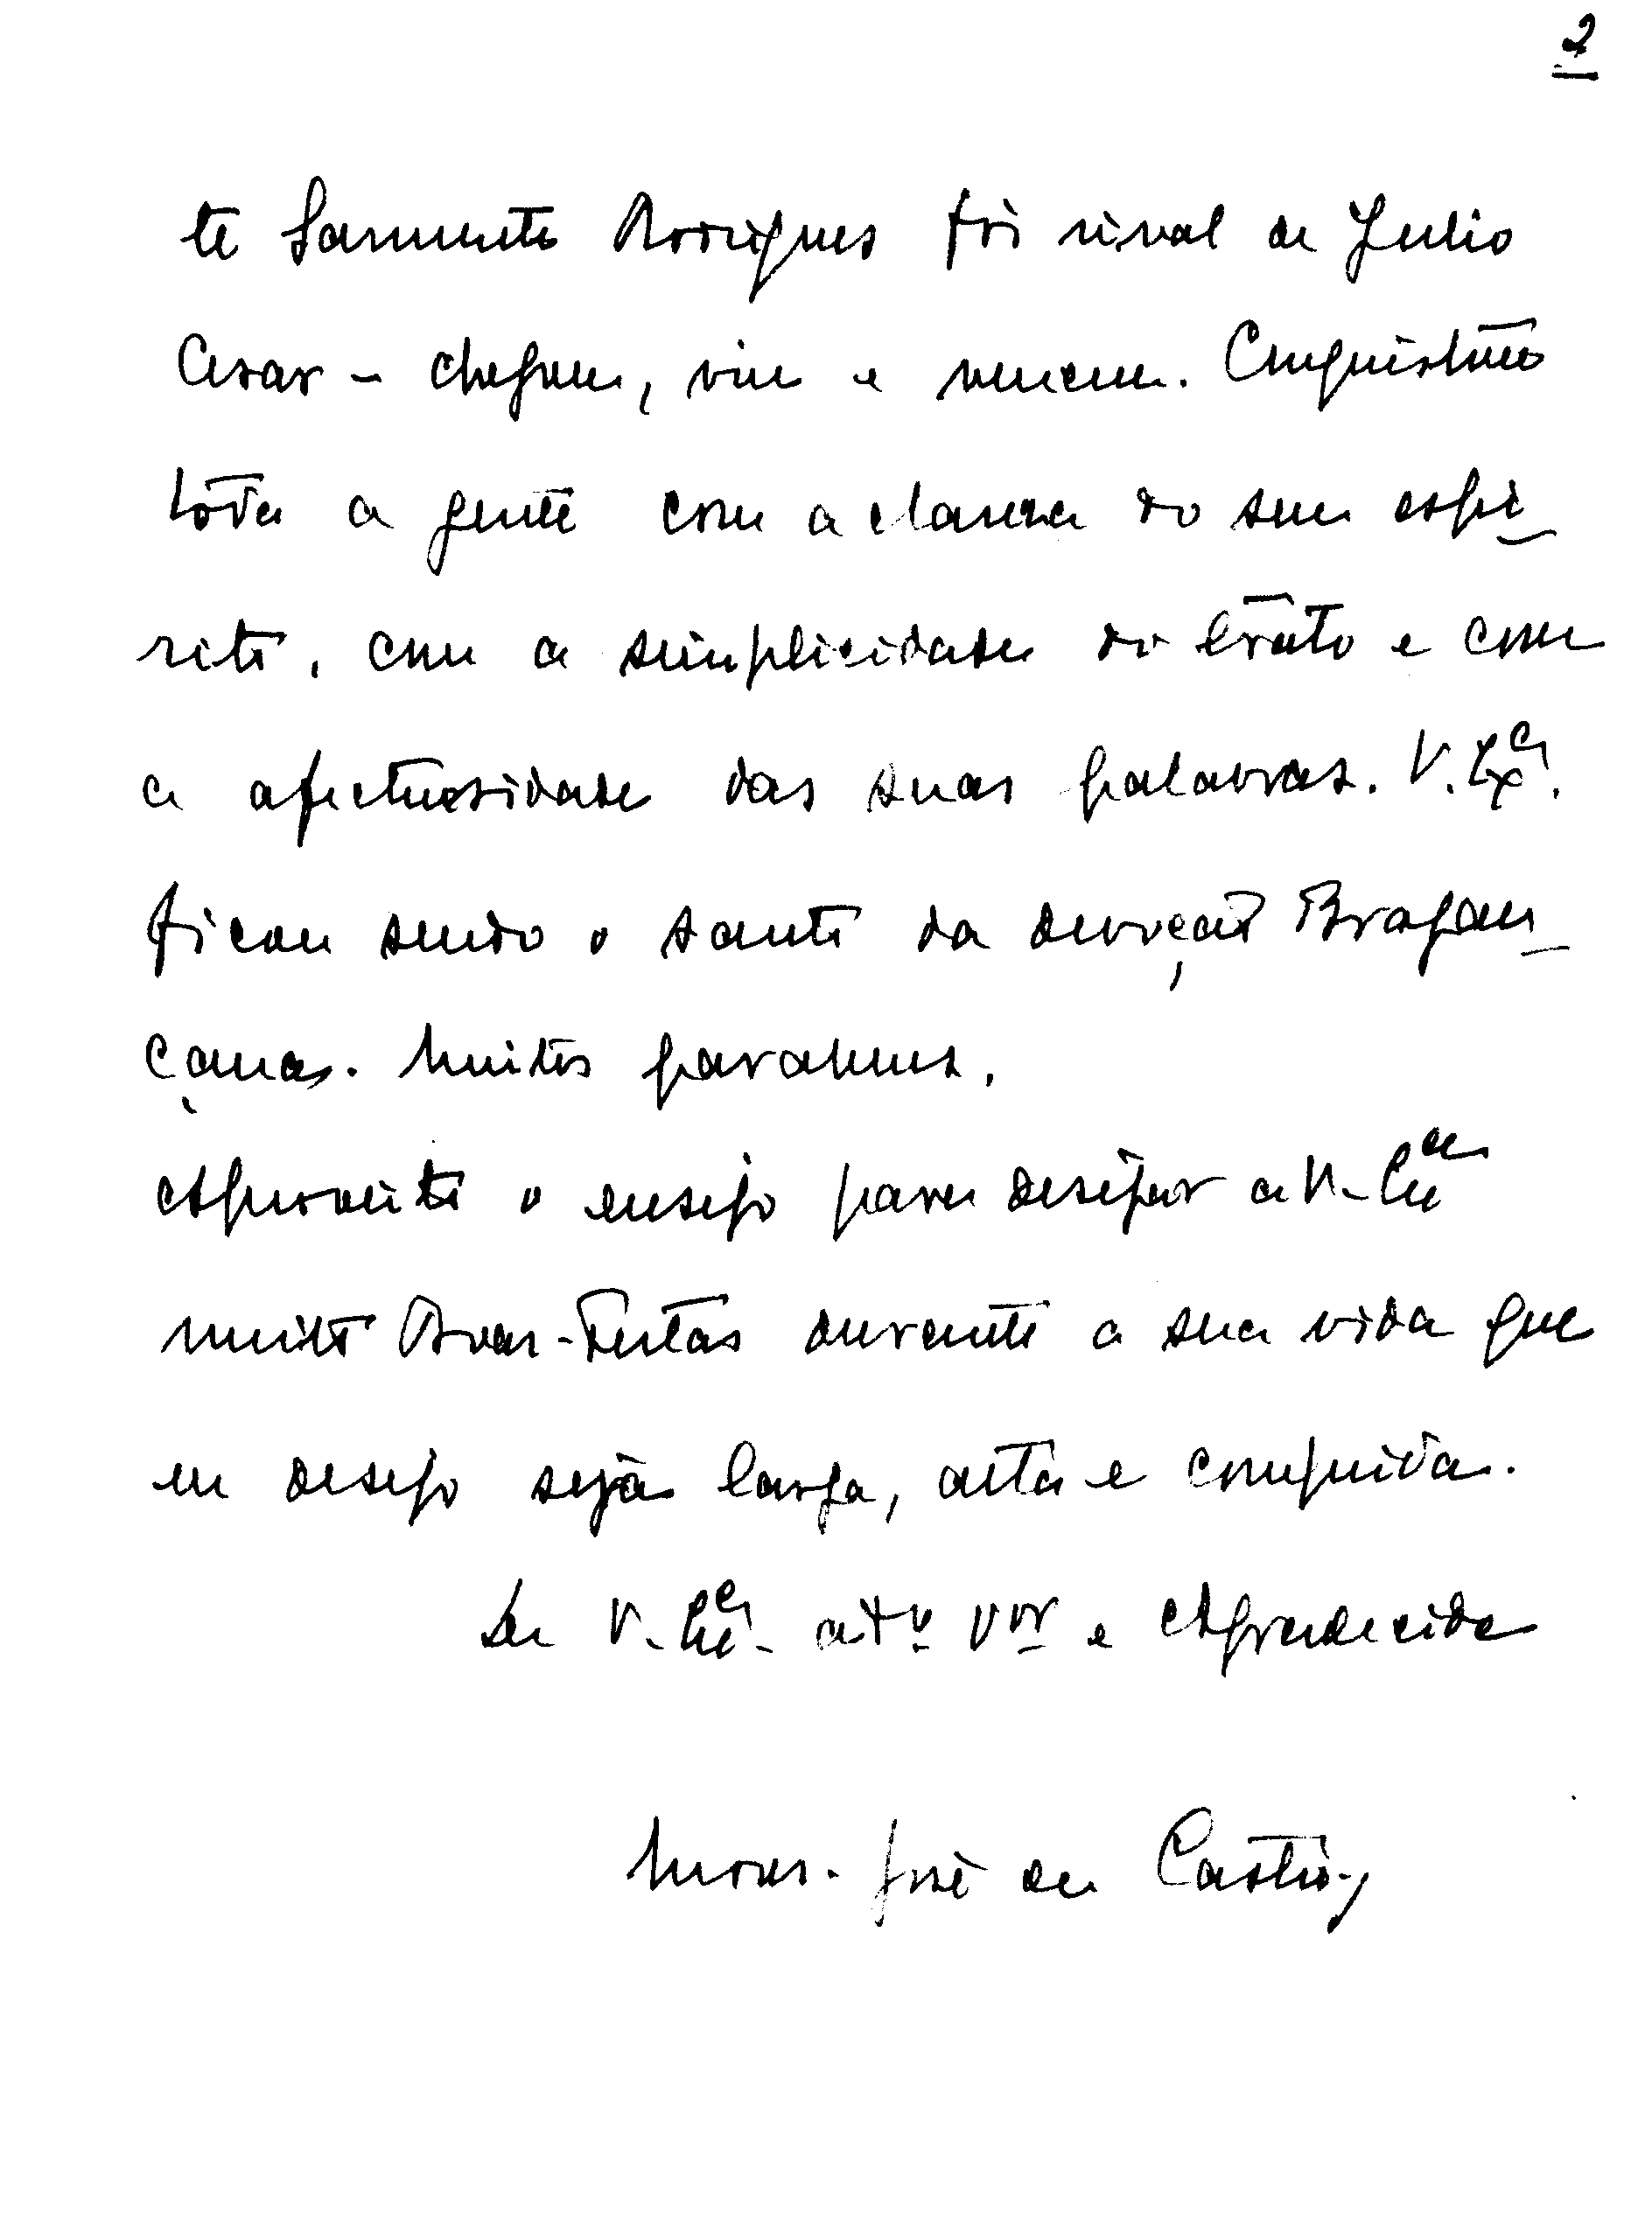 2
te Sarmento Rodrigues foi rival de Julio
Cesar - chegou, viu e venceu. Conquistou
tôda a gente com a clareza do seu espí-
rito, com a simplicidade do trato e com
a afectuosidade das suas palavras. V. Exª.
ficou sendo o santo da devoção Bragan-
çana. Muitos parabens.
Aproveito o ensejo para desejar a V. Exª
muito Boas-Festas durante a sua vida que
eu desejo seja larga, alta e comprida.
De V. Exª. attº vor e Agradecido
Mons. José de Castro